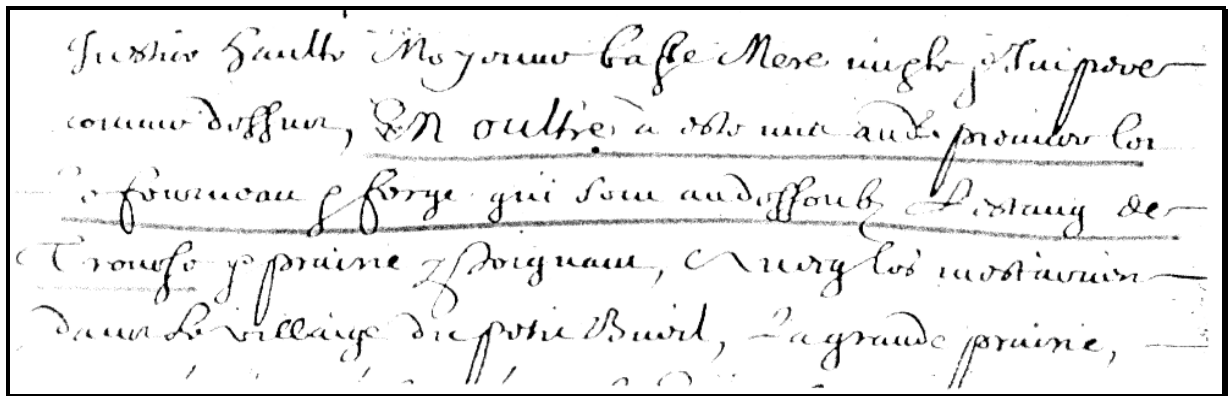 Justice haulte Moyenne basse Mere mixte
comme dessus, En oultre a esté mis audit premier lot
le fourneau et forge qui sont audessoubz L'estang de
Tronchs et prairie y joignant, Avecq les mestairies
dans Le village du petit Bueil, La grande prairie,